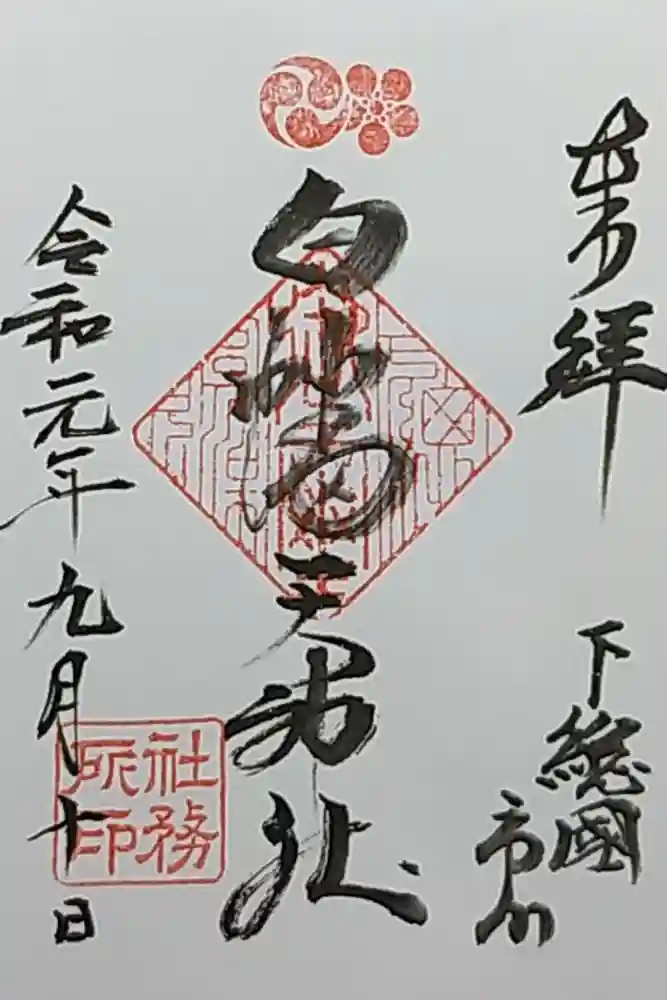 奉拝
下總國
市川
白幡天神社
令和元年九月十日
社務所印